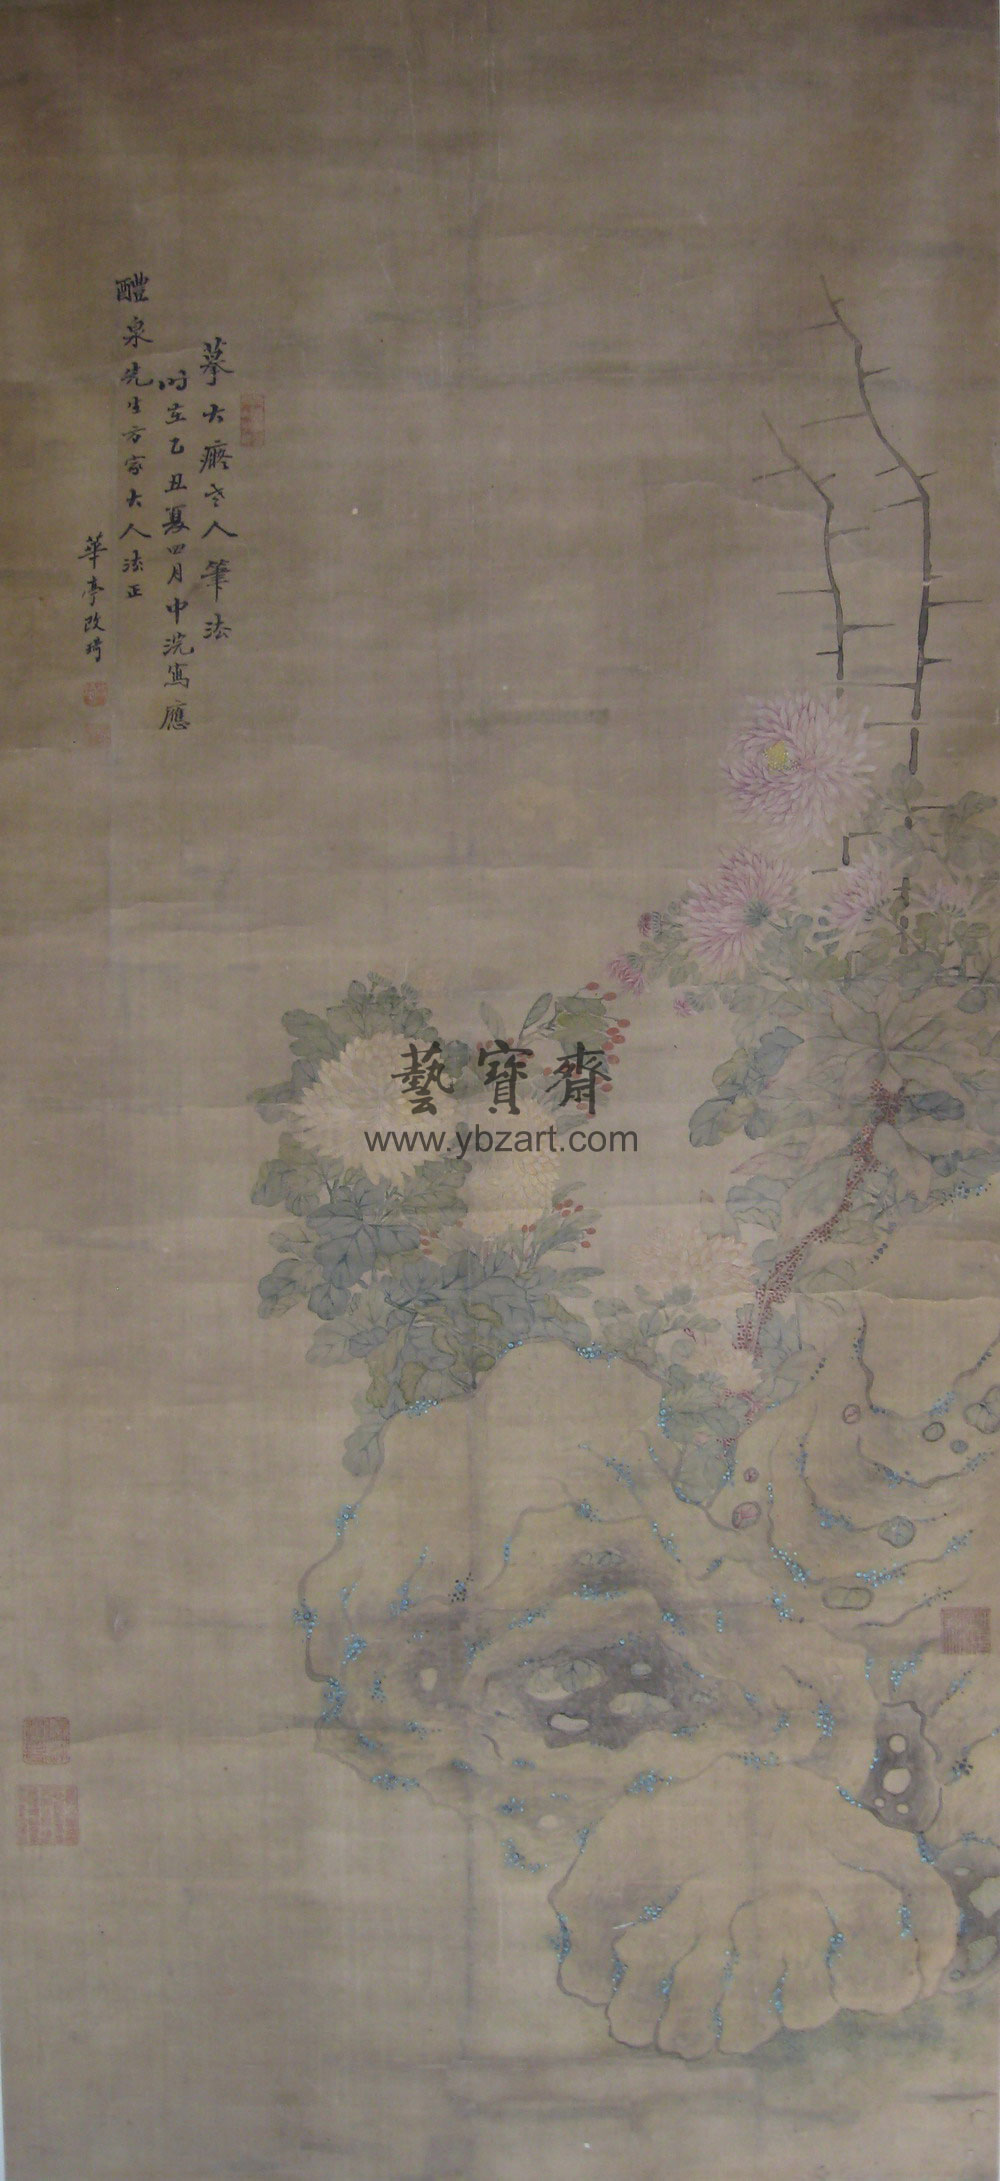 摹大癡老人筆法
时在乙丑夏四月中浣寫應
醴泉先生方家大人法正
華亭改琦
藝寶齋
www.ybzart.com